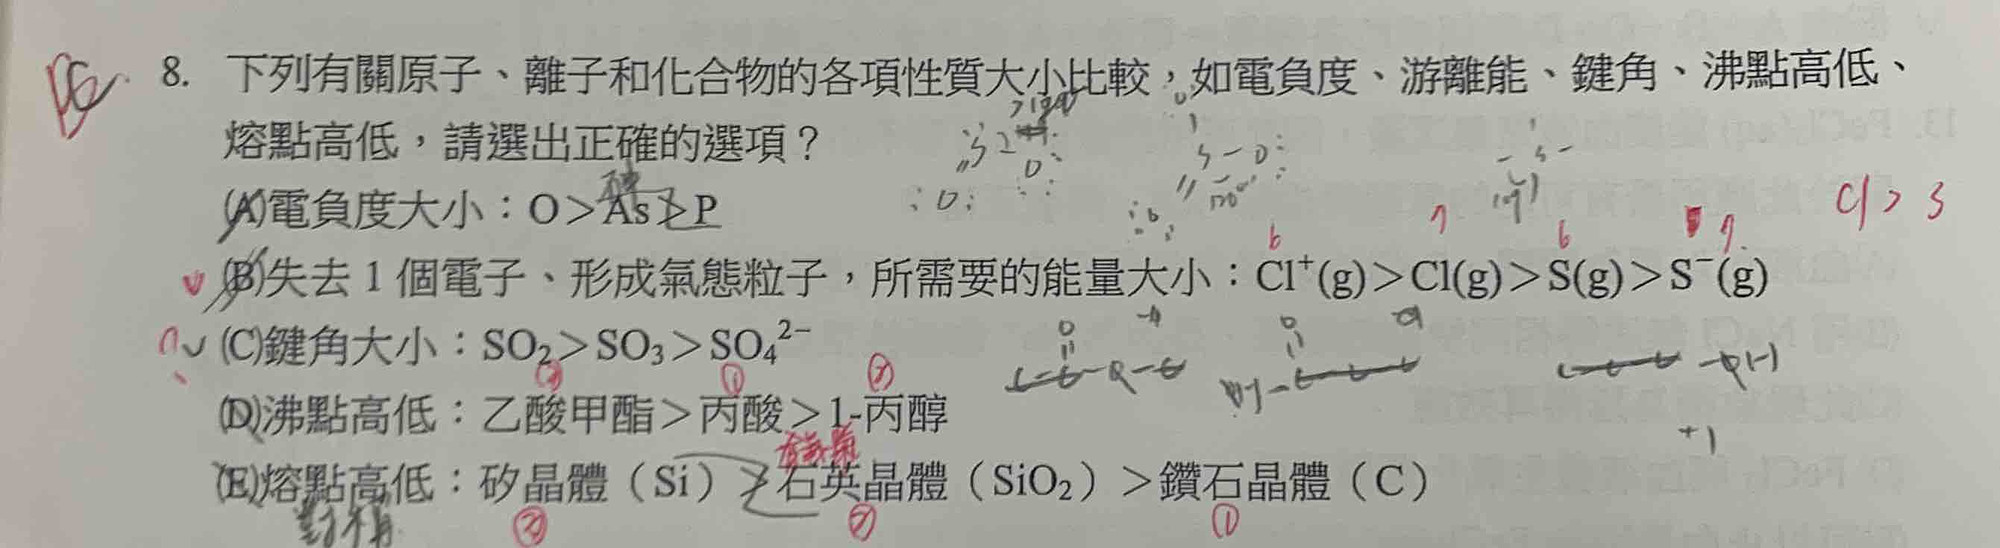 8. 下列有關原子、離子和化合物的各項性質大小比較，如電負度、游離能、鍵角、沸點高低、
熔點高低，請選出正確的選項？
(A)電負度大小：O＞As＞P
Cl > S
6 7 6 7
(B)失去 1 個電子、形成氣態粒子，所需要的能量大小：Cl⁺(g)＞Cl(g)＞S(g)＞S⁻(g)
(C)鍵角大小：SO₂＞SO₃＞SO₄²⁻
③ ① ②
(D)沸點高低：乙酸甲酯＞丙酸＞1-丙醇
+1
(E)熔點高低：矽晶體（Si）＞石英晶體（SiO₂）＞鑽石晶體（C）
對稱 ③ ② ①